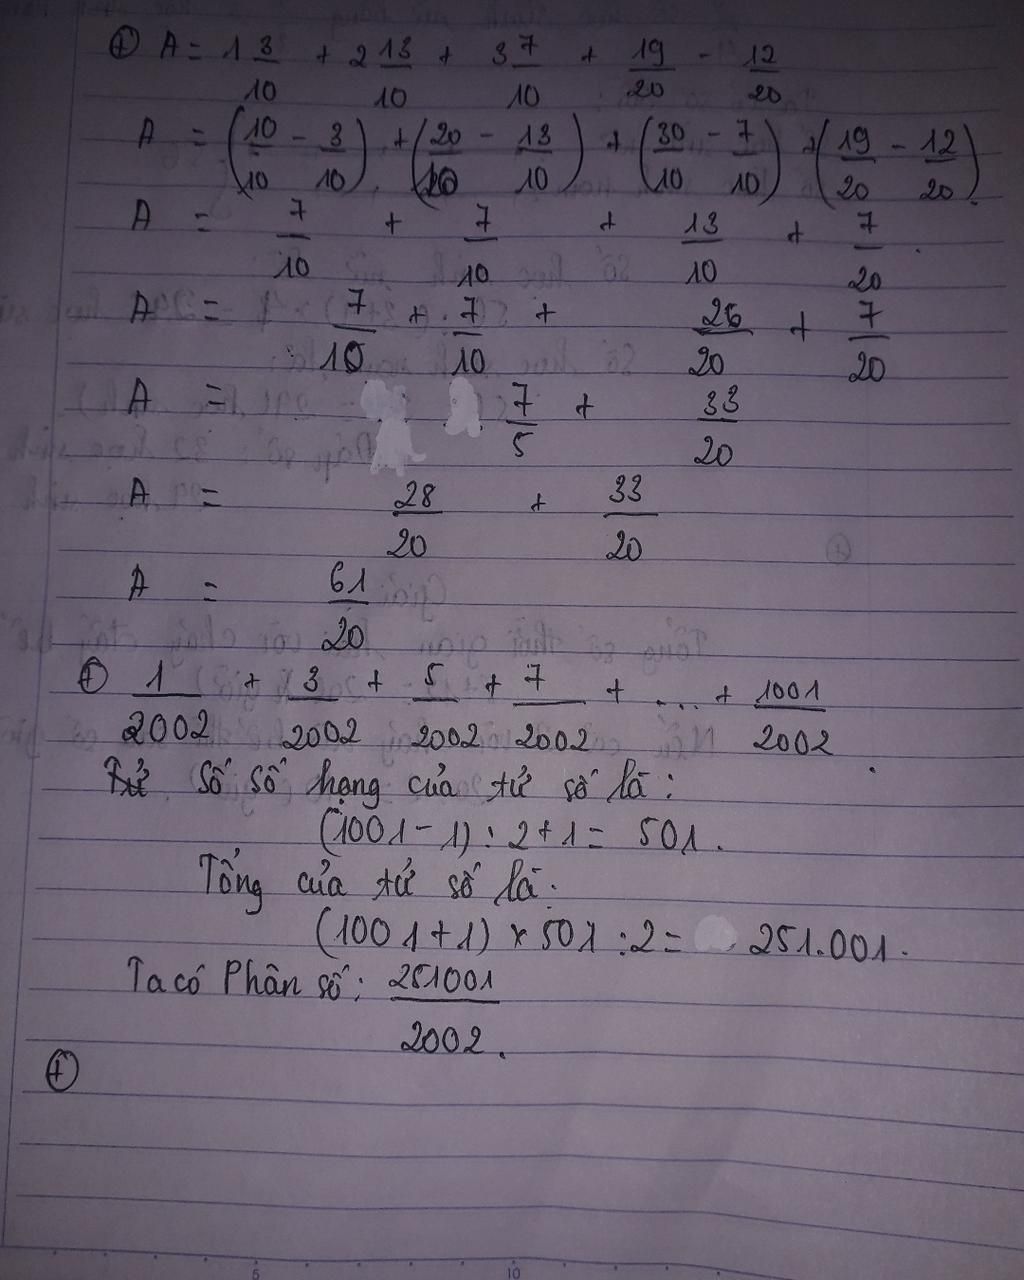 ⊕ A = 1 3/10 + 2 13/10 + 3 7/10 + 19/20 - 12/20
A = (10/10 - 3/10) + (20/10 - 13/10) + (30/10 - 7/10) + (19/20 - 12/20)
A = 7/10 + 7/10 + 13/10 + 7/20
A = 7/10 + 7/10 + 26/20 + 7/20
A = 7/5 + 33/20
A = 28/20 + 33/20
A = 61/20
⊕ 1/2002 + 3/2002 + 5/2002 + 7/2002 + ... + 1001/2002
Số số hạng của tử số là:
(1001 - 1) : 2 + 1 = 501.
Tổng của tử số là:
(1001 + 1) × 501 : 2 = 251.001.
Ta có Phân số: 251001/2002.
⊕
5 10